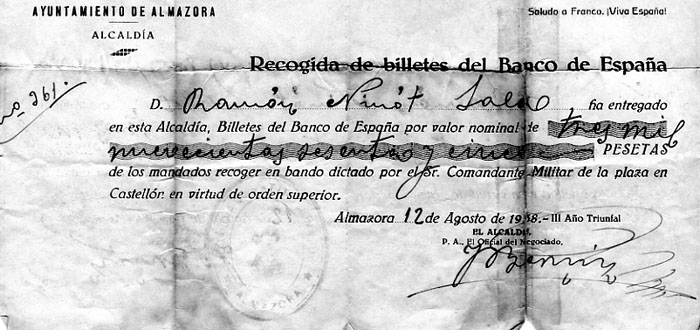 AYUNTAMIENTO DE ALMAZORA
ALCALDÍA
Saludo a Franco. ¡Viva España!
Recogida de billetes del Banco de España
no 261.
D. Ramón Ninot Sala ha entregado
en esta Alcaldía, Billetes del Banco de España por valor nominal de tres mil
nuevecientas sesenta y cinco PESETAS
de los mandados recoger en bando dictado por el Sr. Comandante Militar de la plaza en
Castellón en virtud de orden superior.
Almazora 12 de Agosto de 1938.-III Año Triunfal
EL ALCALDE,
P. A., El Oficial del Negociado,